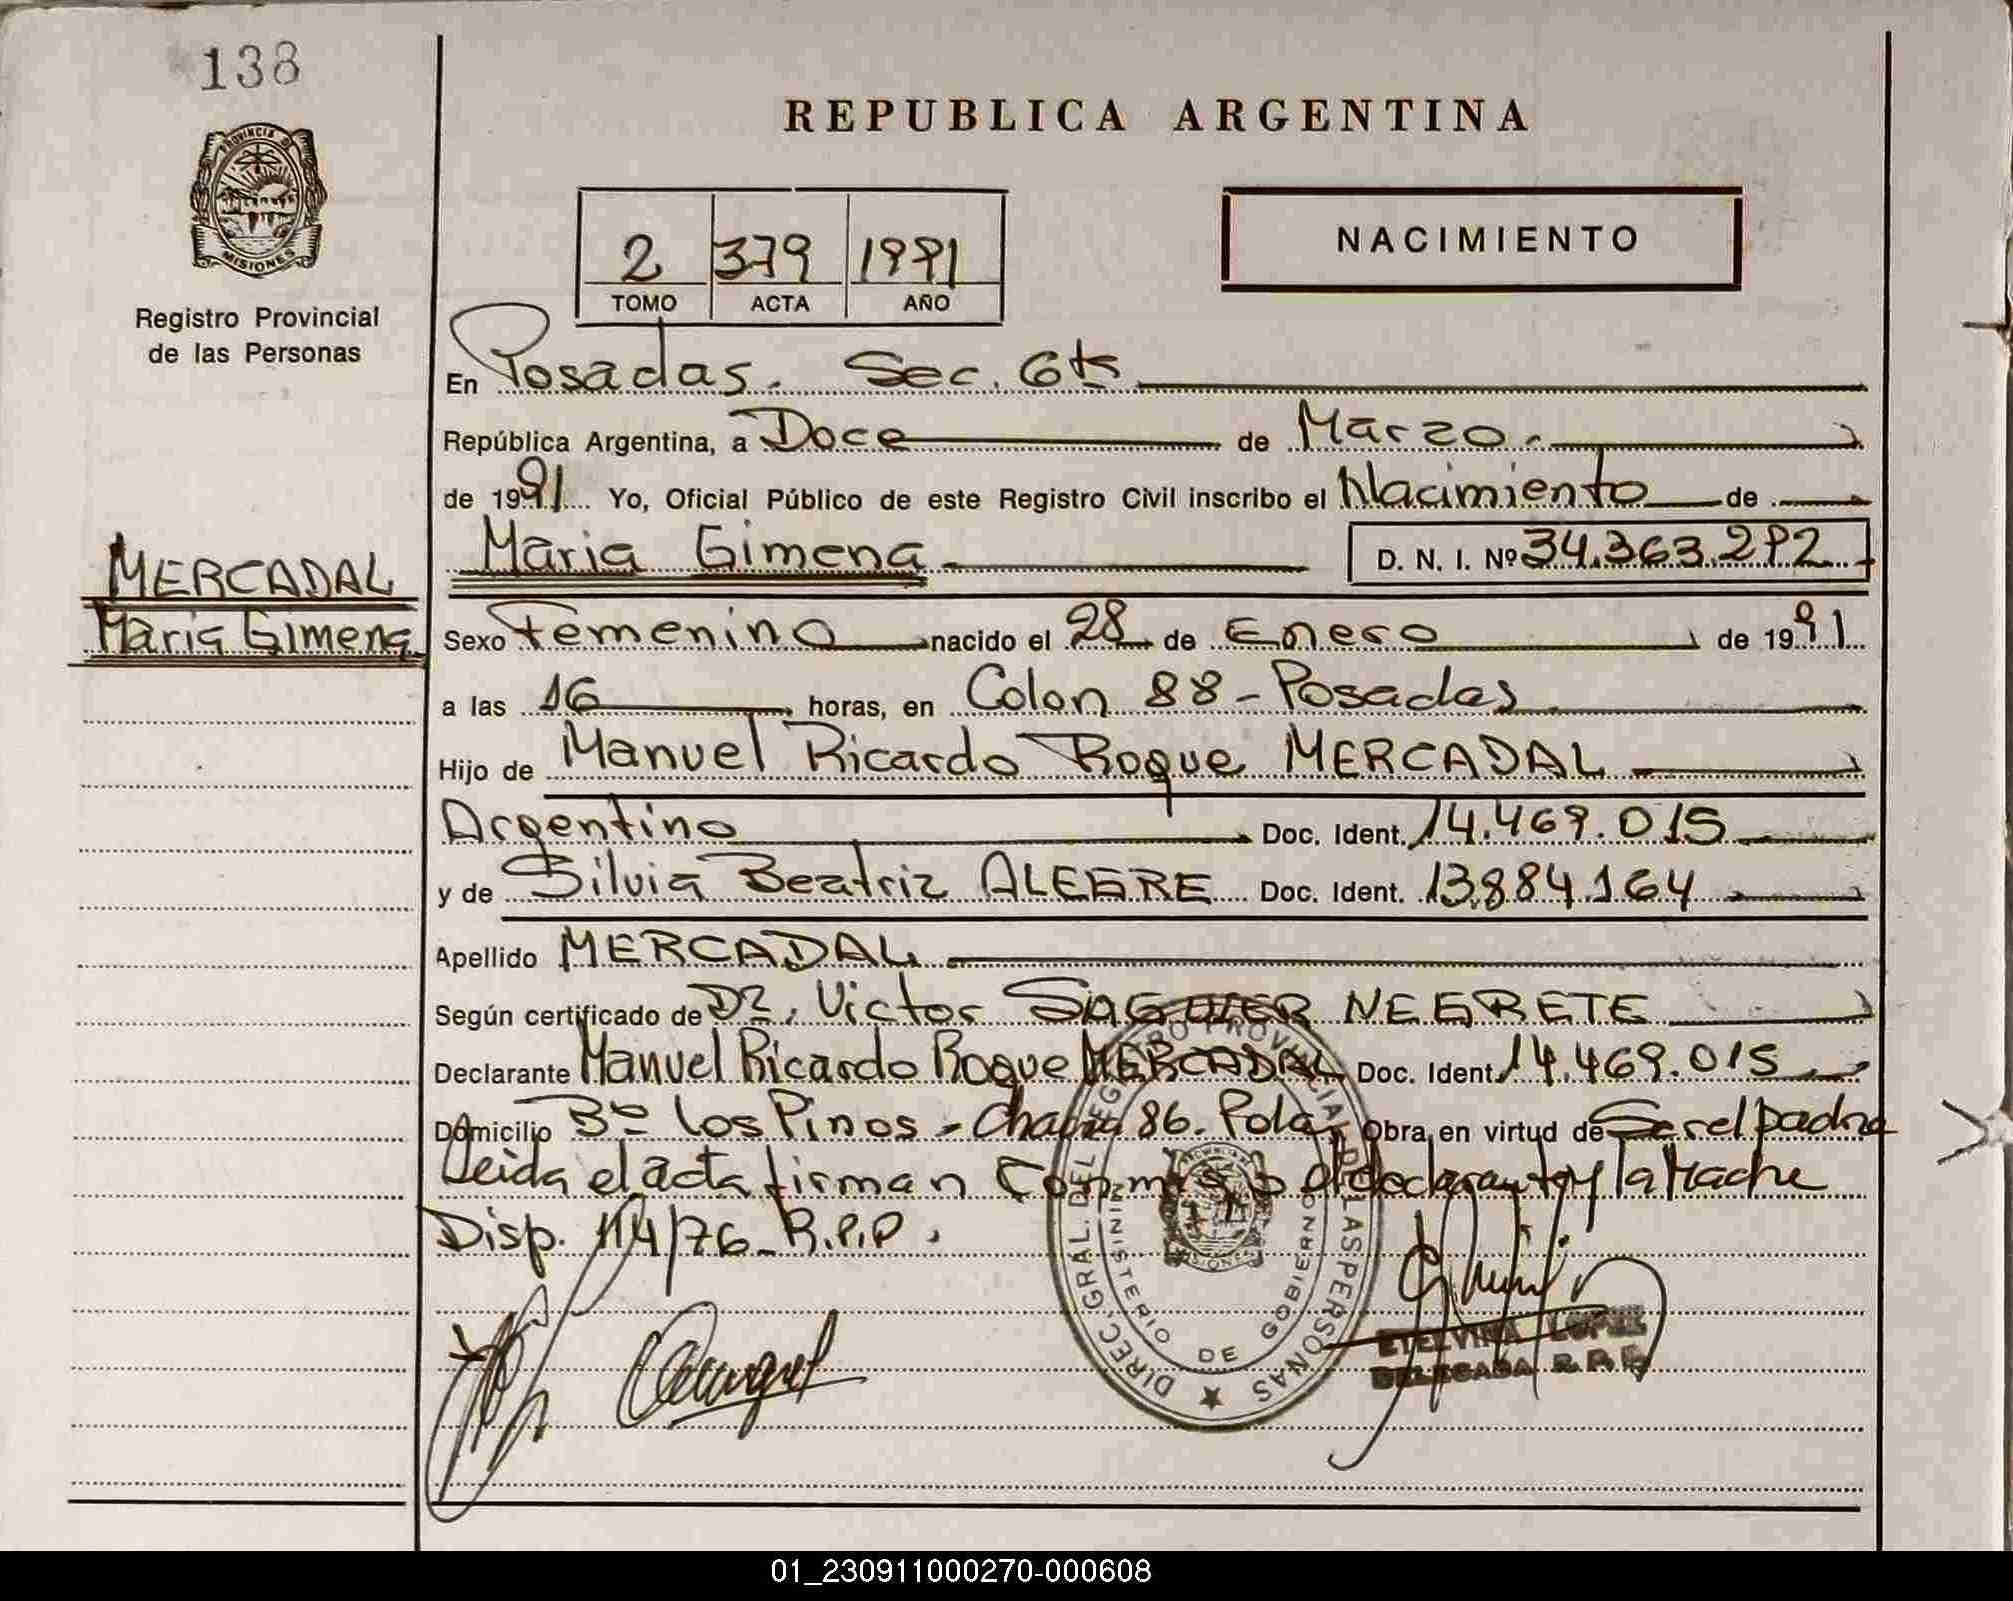 138
REPUBLICA ARGENTINA
PROVINCIA DE
MISIONES
Registro Provincial
de las Personas
2 379 1991
TOMO ACTA AÑO
NACIMIENTO
En Posadas. Sec. 6ta
República Argentina, a Doce de Marzo.
de 1991 Yo, Oficial Público de este Registro Civil inscribo el Nacimiento de
MERCADAL
Maria Gimena
Maria Gimena D. N. I. Nº 34.363.292
Sexo Femenino nacido el 28 de Enero de 1991
a las 16 horas, en Colon 88 - Posadas
Hijo de Manuel Ricardo Roque MERCADAL
Argentino Doc. Ident. 14.469.015
y de Silvia Beatriz ALEGRE Doc. Ident. 13.884.164
Apellido MERCADAL
Según certificado de Dr. Victor SAGUIER NEGRETE
Declarante Manuel Ricardo Roque MERCADAL Doc. Ident. 14.469.015
Domicilio Bº Los Pinos - Chacra 86. Pdas. Obra en virtud de Ser el padre
Leida el acta firman Conmigo el declarante y la Madre
Disp. 114/76 R.P.P.
DIREC. GRAL. DEL REGISTRO PROVINCIAL DE LAS PERSONAS
MINISTERIO DE GOBIERNO
MISIONES
ETELVINA LOPEZ
DELEGADA R.P.P.
01_230911000270-000608